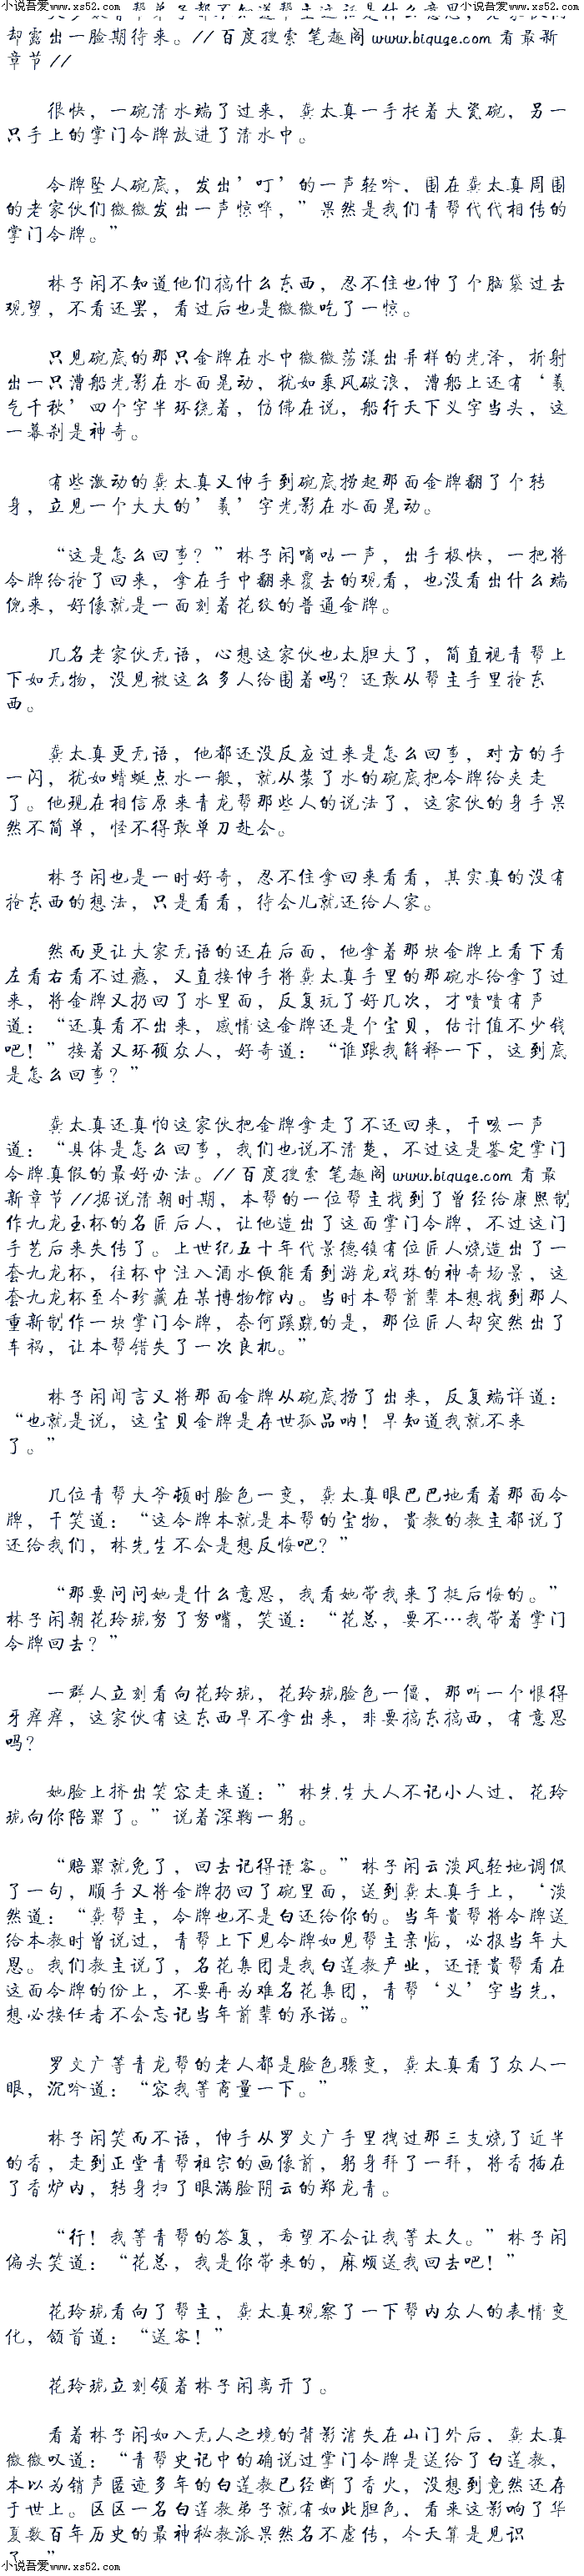 小说吾爱 www.xs52.com 小说吾爱 www.xs52.com 小说吾爱 www.xs52.com
却露出一脸期待来。//百度搜索 笔趣阁 www.biquge.com 看最新
章节//
很快，一碗清水端了过来，龚太真一手托着大瓷碗，另一
只手上的掌门令牌放进了清水中。
令牌坠入碗底，发出’叮’的一声轻吟，围在龚太真周围
的老家伙们微微发出一声惊哗，”果然是我们青帮代代相传的
掌门令牌。”
林子闲不知道他们搞什么东西，忍不住也伸了个脑袋过去
观望，不看还罢，看过后也是微微吃了一惊。
只见碗底的那只金牌在水中微微荡漾出异样的光泽，折射
出一只漕船光影在水面晃动，犹如乘风破浪，漕船上还有‘義
气千秋’四个字半环绕着，仿佛在说，船行天下义字当头，这
一幕刹是神奇。
有些激动的龚太真又伸手到碗底捞起那面金牌翻了个转
身，立见一个大大的’義’字光影在水面晃动。
“这是怎么回事？”林子闲嘀咕一声，出手极快，一把将
令牌给抢了回来，拿在手中翻来覆去的观看，也没看出什么端
倪来，好像就是一面刻着花纹的普通金牌。
几名老家伙无语，心想这家伙也太胆大了，简直视青帮上
下如无物，没见被这么多人给围着吗？还敢从帮主手里抢东
西。
龚太真更无语，他都还没反应过来是怎么回事，对方的手
一闪，犹如蜻蜓点水一般，就从装了水的碗底把令牌给夹走
了。他现在相信原来青龙帮那些人的说法了，这家伙的身手果
然不简单，怪不得敢单刀赴会。
林子闲也是一时好奇，忍不住拿回来看看，其实真的没有
抢东西的想法，只是看看，待会儿就还给人家。
然而更让大家无语的还在后面，他拿着那块金牌上看下看
左看右看不过瘾，又直接伸手将龚太真手里的那碗水给拿了过
来，将金牌又扔回了水里面，反复玩了好几次，才啧啧有声
道：“还真看不出来，感情这金牌还是个宝贝，估计值不少钱
吧！”接着又环顾众人，好奇道：“谁跟我解释一下，这到底
是怎么回事？”
龚太真还真怕这家伙把金牌拿走了不还回来，干咳一声
道：“具体是怎么回事，我们也说不清楚，不过这是鉴定掌门
令牌真假的最好办法。//百度搜索 笔趣阁 www.biquge.com 看最
新章节//据说清朝时期，本帮的一位帮主找到了曾经给康熙制
作九龙玉杯的名匠后人，让他造出了这面掌门令牌，不过这门
手艺后来失传了。上世纪五十年代景德镇有位匠人烧造出了一
套九龙杯，往杯中注入酒水便能看到游龙戏珠的神奇场景，这
套九龙杯至今珍藏在某博物馆内。当时本帮前辈本想找到那人
重新制作一块掌门令牌，奈何蹊跷的是，那位匠人却突然出了
车祸，让本帮错失了一次良机。”
林子闲闻言又将那面金牌从碗底捞了出来，反复端详道：
“也就是说，这宝贝金牌是存世孤品呐！早知道我就不来
了。”
几位青帮大爷顿时脸色一变，龚太真眼巴巴地看着那面令
牌，干笑道：“这令牌本就是本帮的宝物，貴教的教主都说了
还给我们，林先生不会是想反悔吧？”
“那要问问她是什么意思，我看她带我来了挺后悔的。”
林子闲朝花玲珑努了努嘴，笑道：“花总，要不…我带着掌门
令牌回去？”
一群人立刻看向花玲珑，花玲珑脸色一僵，那听一个恨得
牙痒痒，这家伙有这东西早不拿出来，非要搞东搞西，有意思
吗？
她脸上挤出笑容走来道：”林先生大人不记小人过，花玲
珑向你陪罪了。”说着深鞠一躬。
“赔罪就免了，回去记得请客。”林子闲云淡风轻地调侃
了一句，顺手又将金牌扔回了碗里面，送到龚太真手上，‘淡
然道：“龚帮主，令牌也不是白还给你的。当年貴帮将令牌送
给本教时曾说过，青帮上下见令牌如见帮主亲临，必报当年大
恩。我们教主说了，名花集团是我白莲教产业，还请貴帮看在
这面令牌的份上，不要再为难名花集团，青帮‘义’字当先，
想必接任者不会忘记当年前辈的承诺。”
罗文广等青龙帮的老人都是脸色骤变，龚太真看了众人一
眼，沉吟道：“容我等商量一下。”
林子闲笑而不语，伸手从罗文广手里拽过那三支烧了近半
的香，走到正堂青帮祖宗的画像前，躬身拜了一拜，将香插在
了香炉内，转身扫了眼满脸阴云的郑龙青。
“行！我等青帮的答复，希望不会让我等太久。”林子闲
偏头笑道：“花总，我是你带来的，麻烦送我回去吧！”
花玲珑看向了帮主，龚太真观察了一下帮内众人的表情变
化，颌首道：“送客！”
花玲珑立刻领着林子闲离开了。
看着林子闲如入无人之境的背影消失在山门外后，龚太真
微微叹道：“青帮史记中的确说过掌门令牌是送给了白莲教，
本以为销声匿迹多年的白莲教已经断了香火，没想到竟然还存
于世上。区区一名白莲教弟子就有如此胆色，看来这影响了华
夏数百年历史的最神秘教派果然名不虚传，今天算是见识
了。”
小说吾爱 www.xs52.com 小说吾爱 www.xs52.com 小说吾爱 www.xs52.com